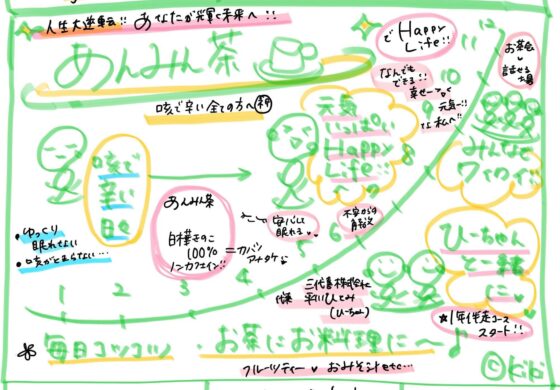 人生大逆転!! あなたが輝く未来へ!!
あんみん茶
咳で辛い全ての方へ
咳で
辛い
日々
・ゆっくり
眠れない
・咳がとまらない…
あんみん茶
白樺きのこ
100%
=カバノアナタケ
ノンカフェイン!!
元気
いっぱい
Happy
Life!!
で Happy
Life!!
なんでも
できる!!
幸せ〜
元気〜!!
な私へ!!
お茶会
話せる
みんなで
ワイワイ
安心して
眠れる
不安がら
解放
三代喜株式会社
代表
平川ひとみ
(ひーちゃん)
ひーちゃん
と一緒
に
*1年伴走コース
スタート!!
1
2
3
4
5
6
8
9
10
11
12
*毎日コツコツ・お茶にお料理に〜♪
フルーツティー おみそ汁etc…
©kiki